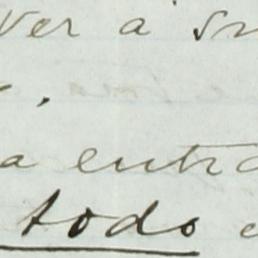 ver a su
a entra
todo